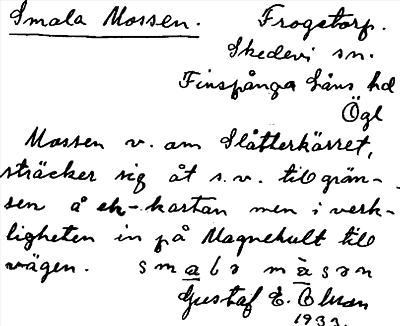 Smala Mossen. Frogstorp.
Skedevi sn.
Finspånga läns hd
Ögl
Mossen v. om Slåtterkärret,
sträcker sig åt s.v. till grän-
sen å ek-kartan men i verk-
ligheten in på Magnehult till
vägen. smalə måsən
Gustaf E. Olsson
1933.